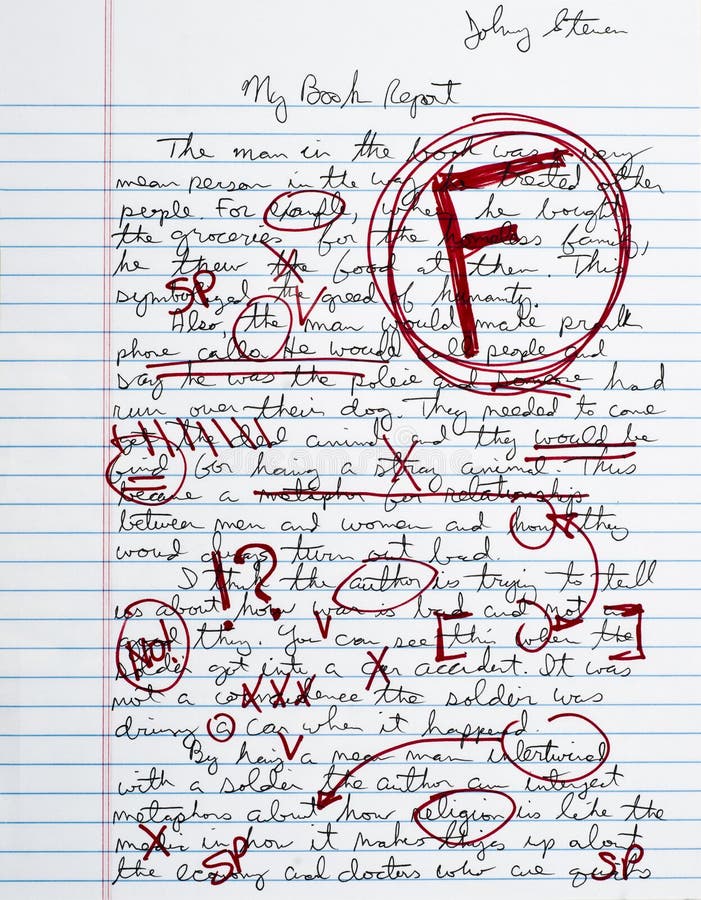 Johny Steven
My Book Report
The man in the book was a very
mean person in the way he treated other
people. For example, when he bought
the groceries for the homeless family,
he threw the food at them. This
SP
symbolized the greed of humanity.
Also, the man would make prank
phone calls. He would call people and
say he was the police and someone had
run over their dog. They needed to come
get the dead animal and they would be
find for having a stray animal. Thus
became a metaphor for relationship
between men and women and how they
woud always turn out bad.
!?
I think the author is trying to tell
us about how war is bad and not a
good thing. You can see this when the
No!
solder got into a car accident. It was
not a the soldier was
driving a car when it happend.
By having a mean man intertwined
with a solder the author can interject
metaphors about how religion is like the
in how it makes things up about
SP
SP
the economy and doctors who are
F